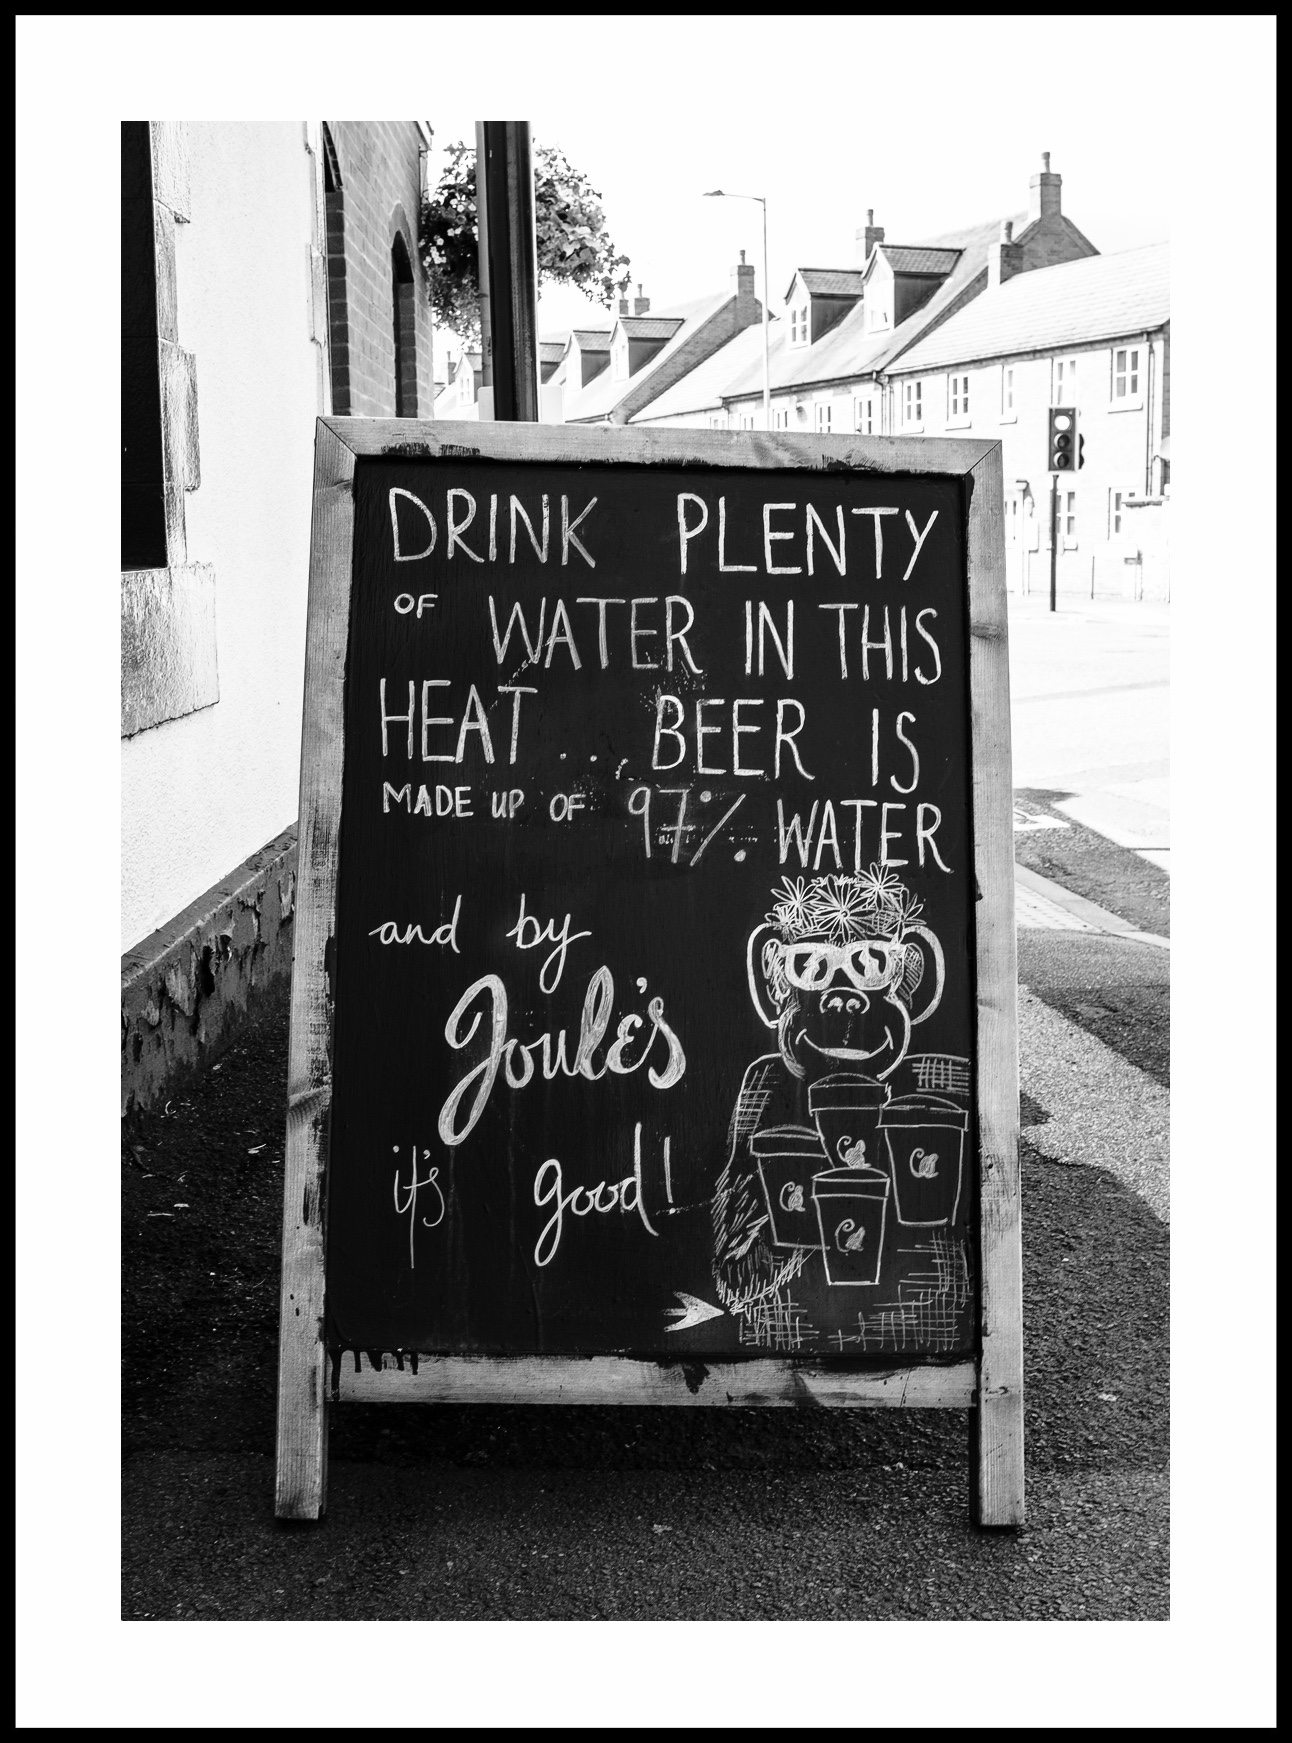 DRINK PLENTY
OF WATER IN THIS
HEAT... BEER IS
MADE UP OF 97% WATER
and by
Joule's
it's good!